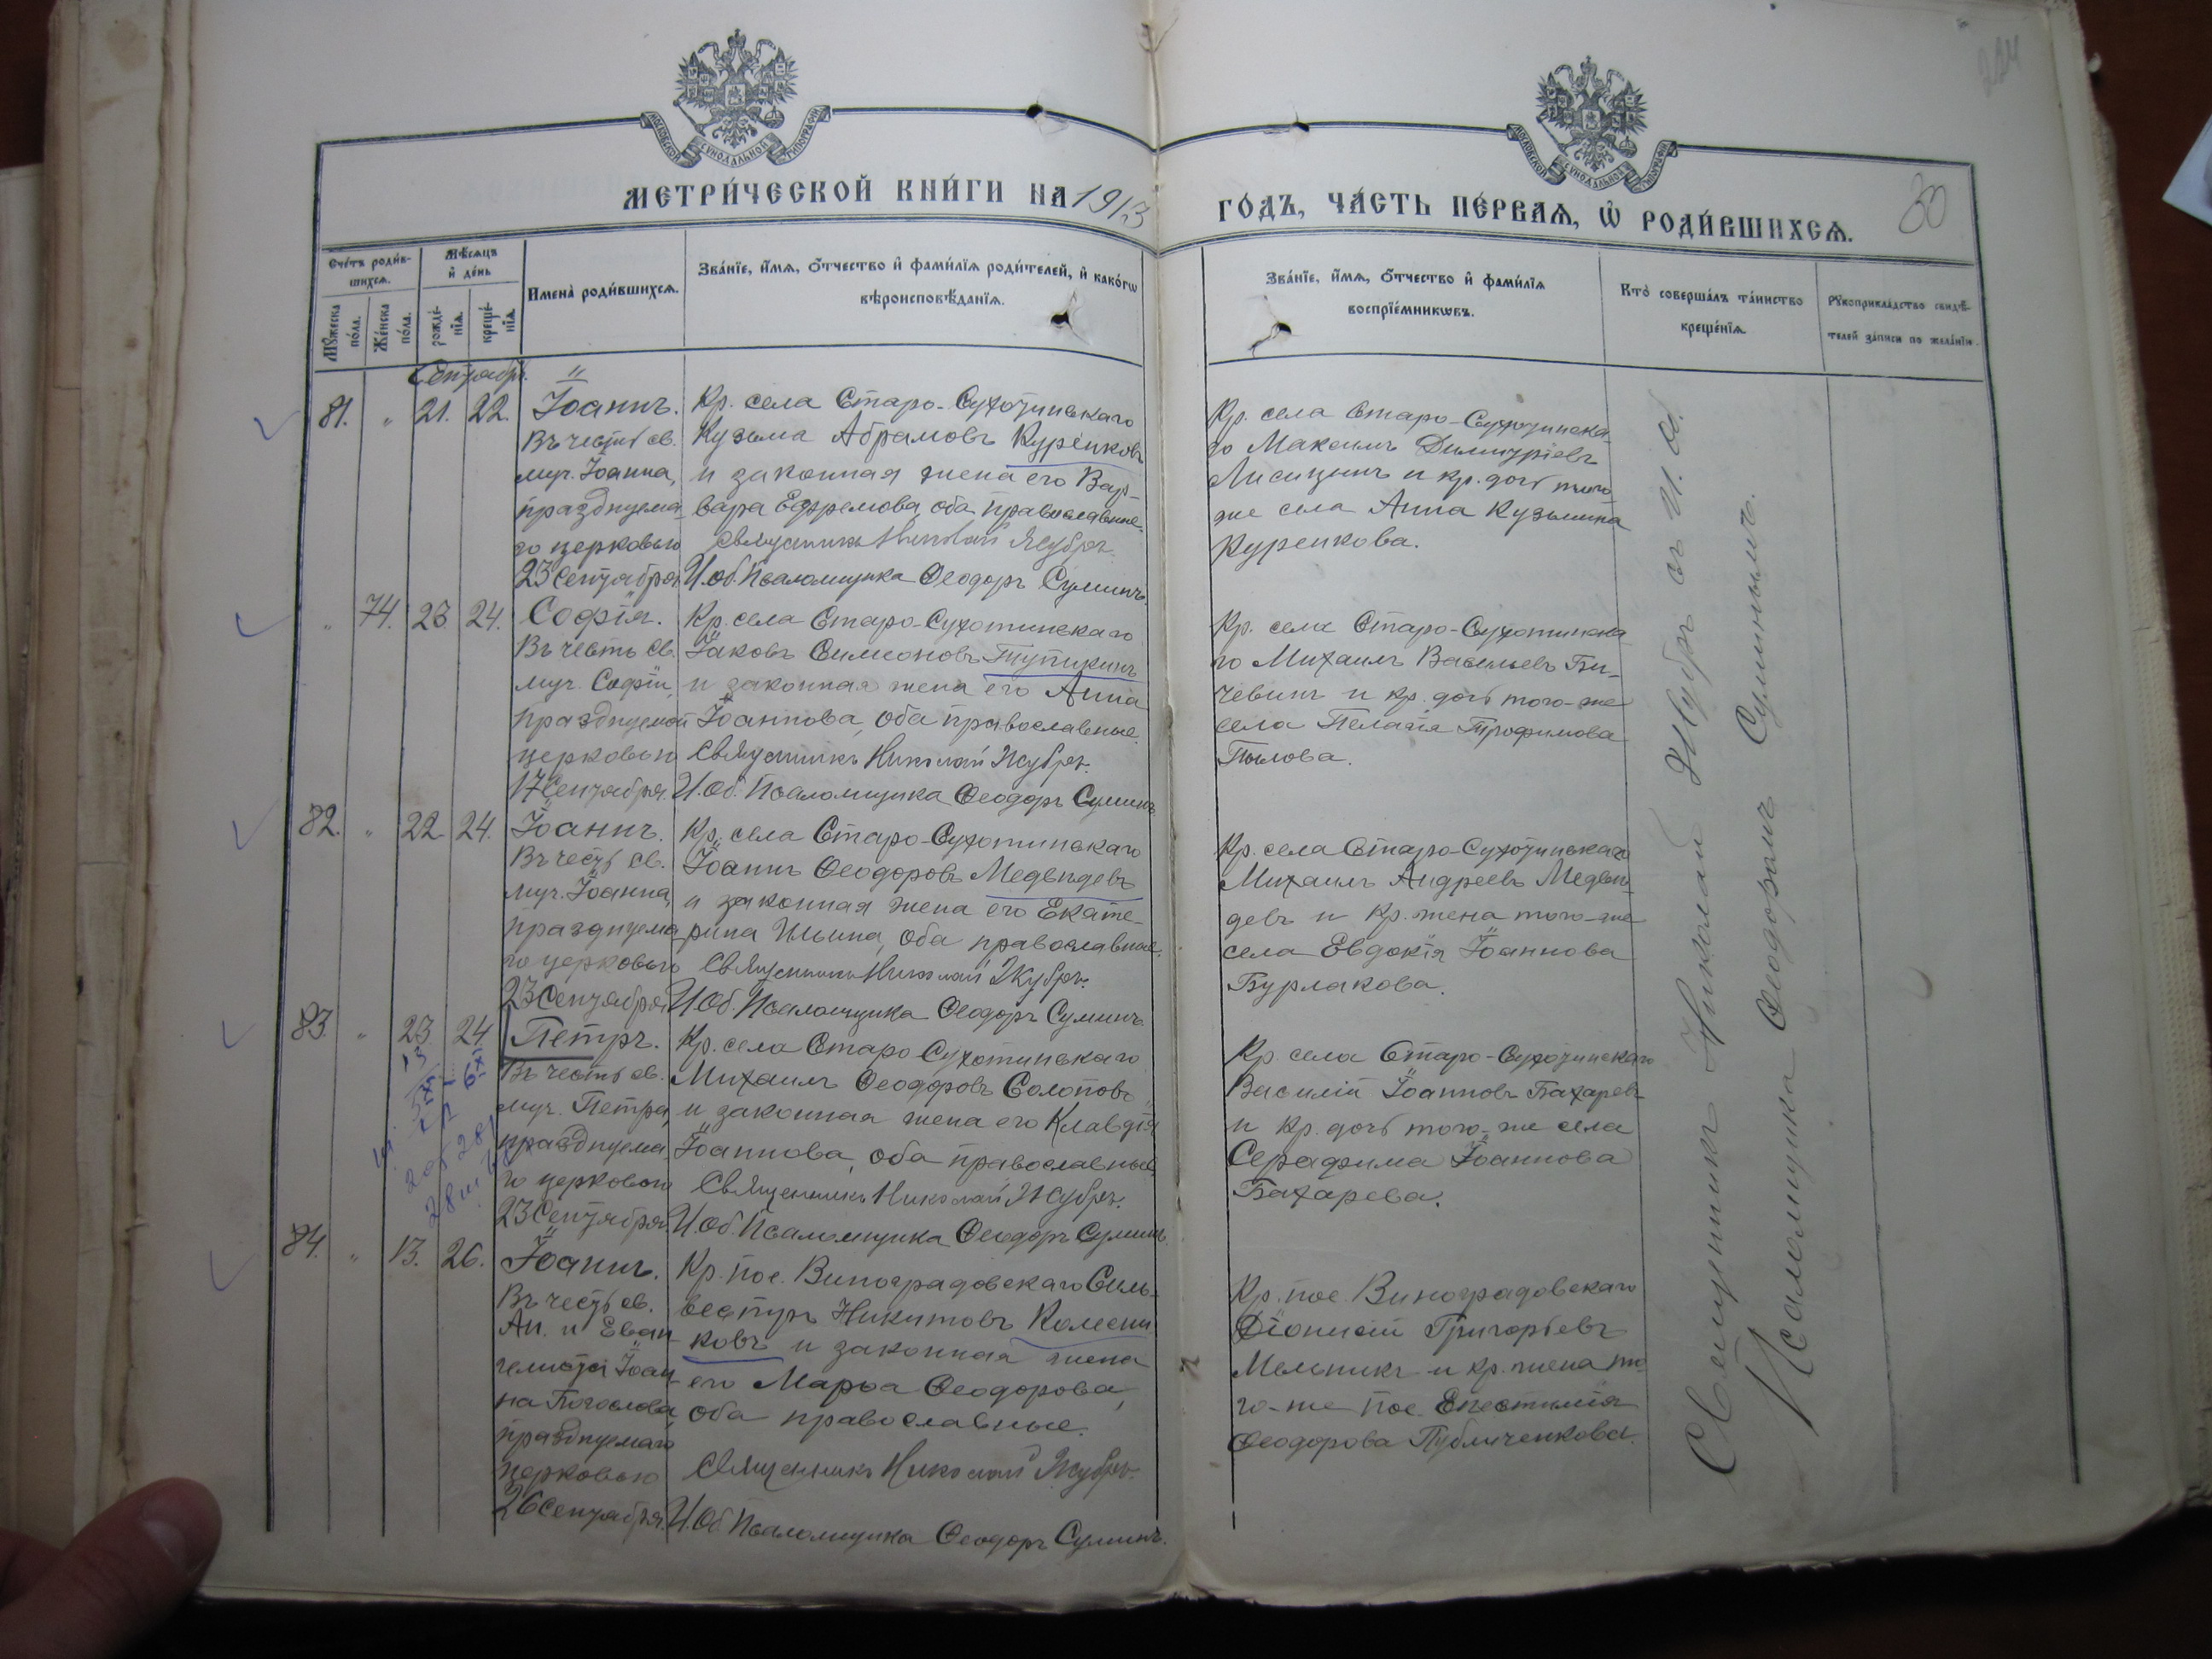 224
МОСКОВСКОЙ СѴНОДАЛЬНОЙ ТИПОГРАФІИ
МОСКОВСКОЙ СѴНОДАЛЬНОЙ ТИПОГРАФІИ
МЕТРИ́ЧЕСКОЙ КНИ́ГИ НА 1913
ГО́ДЪ, ЧА́СТЬ ПЕ́РВАѦ, Ѡ҆ РОДИ́ВШИХСѦ.
30
Сче́тъ роди́в-
шихсѧ.
Мꙋ́жеска по́ла.
Же́нска по́ла.
Мѣ́сѧцъ и҆ де́нь
рожде́-нїѧ.
креще́-нїѧ.
И҆мена̀ роди́вшихсѧ.
Зва́нїе, и҆́мѧ, ѻ҆́тчество и҆ фами́лїѧ роди́телей, и҆ како́гѡ
вѣроисповѣ́данїѧ.
Зва́нїе, и҆́мѧ, ѻ҆́тчество и҆ фами́лїѧ
воспрїе́мникѡвъ.
Кто̀ соверша́лъ та́инство
креще́нїѧ.
Рꙋкоприкла́дство свидѣ́-
телей за́писи по жела́нїю.
Сентябрь.
81. " 21. 22. Іоаннъ.
Въ честь св.
муч. Іоанна,
празднуема-
го церковью
23 Сентября
Кр. села Старо-Сухотинскаго
Кузьма Абрамовъ Куренковъ
и законная жена его Вар-
вара Ефремова, оба православные.
Священникъ Николай Жубръ.
И. об. Псаломщика Ѳеодоръ Суминъ.
Кр. села Старо-Сухотинска-
го Максимъ Димитріевъ
Лисицинъ и кр. дочь того-
же села Анна Кузьмина
Куренкова.
" 74. 23. 24. Софія.
Въ честь св.
муч. Софіи,
празднуемой
церковью
17 Сентября.
Кр. села Старо-Сухотинскаго
Іаковъ Симеоновъ Тупикинъ
и законная жена его Анна
Іоаннова, оба православные.
Священникъ Николай Жубръ.
И. Об. Псаломщика Ѳеодоръ Суминъ
Кр. села Старо-Сухотинска-
го Михаилъ Васильевъ Би-
чевинъ и кр. дочь того-же
села Пелагія Трофимова
82. " 22 24. Іоаннъ.
Въ честь св.
муч. Іоанна,
празднуема-
го церковью
23 Сентября
Кр. села Старо-Сухотинскаго
Іоаннъ Ѳеодоровъ Медвѣдевъ
и законная жена его Екате-
рина Ильина, оба православные.
Священникъ Николай Жубръ.
И. Об. Псаломщика Ѳеодоръ Суминъ
Кр. села Старо-Сухотинскаго
Михаилъ Андреевъ Медвѣ-
девъ и кр. жена того-же
села Евдокія Іоаннова
Бурлакова.
83. " 23. 24 Петръ.
Въ честь св.
муч. Петра,
празднуема
го церковью
23 Сентября
Кр. села Старо-Сухотинскаго
Михаилъ Ѳеодоровъ Солоповъ
и законная жена его Клавдія
Іоаннова, оба православные,
Священникъ Николай Жубръ.
И. Об. Псаломщика Ѳеодоръ Суминъ.
Кр. села Старо-Сухотинскаго
Василій Іоанновъ Бахаревъ
и кр. дочь того-же села
Серафима Іоаннова
Бахарева.
84. " 13. 26. Іоаннъ.
Въ честь св.
Ап. и Еван-
гелиста Іоан-
на Богослова,
празднуемаго
церковью
26 Сентября.
Кр. пос. Виноградовскаго Силь-
вестръ Никитовъ Колесни-
ковъ и законная жена
его Марѳа Ѳеодорова,
оба православные.
Священникъ Николай Жубръ.
И. Об. Псаломщика Ѳеодоръ Суминъ.
Кр. пос. Виноградовскаго
Діонисій Григорьевъ
Мельникъ и кр. жена то-
го-же пос. Епистимія
Ѳеодорова
Священникъ Николай Жубръ съ И. об.
Псаломщика Ѳеодоромъ Суминымъ.